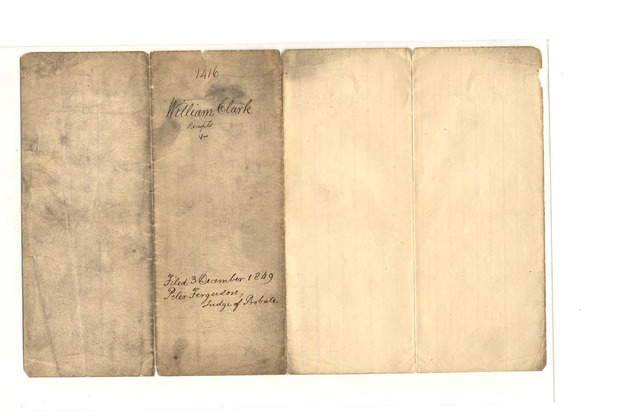 1416
William Clark
Receipts
&c
Filed 3 December 1849
Peter Ferguson,
Judge of Probate